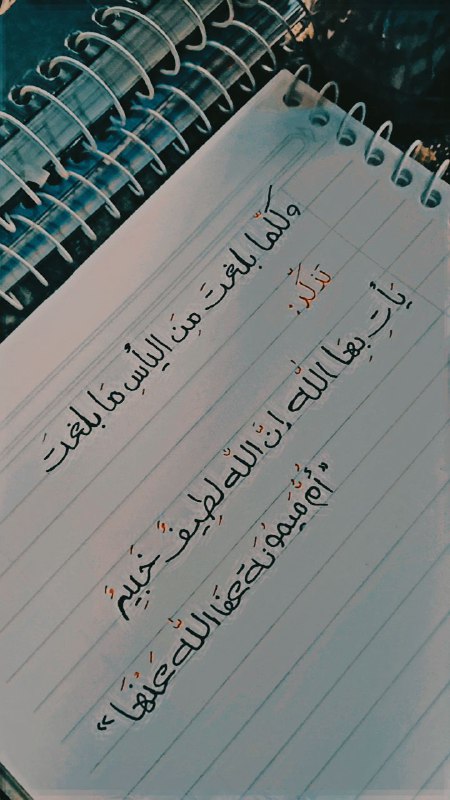 وكلّما بلغتَ مِنَ اليأسِ مَا بلغتَ
تذكّر:
يَأتِ بِهَا اللّٰه إنَّ اللّٰه لطِيفٌ خَبِيرٌ
"أم مَيمُونَة عَفا اللّٰه عَنْهَا"